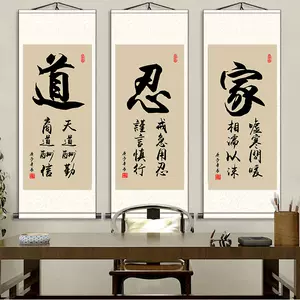 道
天道酬勤
商道酬信
忍
戒急用忍
謹言慎行
家
嘘寒問暖
相濡以沫